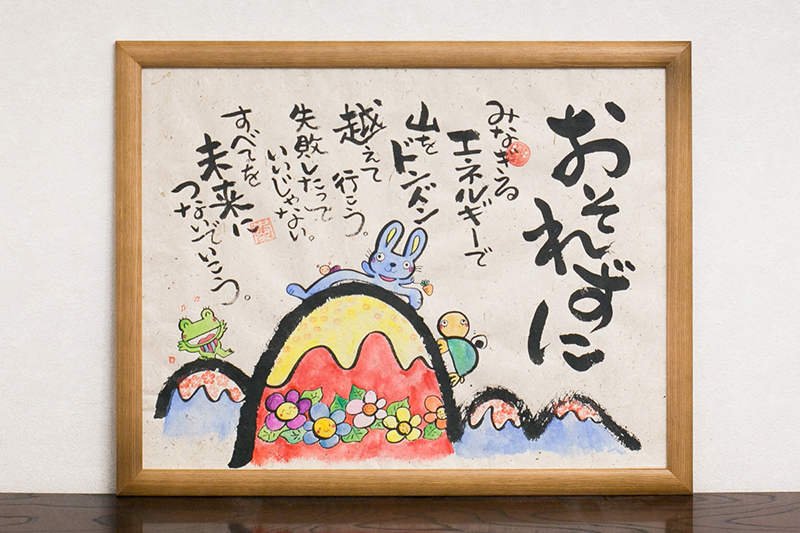 おそれずに
みなぎる
エネルギーで
山を
ドンドン
越えて
行こう。
失敗したって
いいじゃない。
すべてを
未来に
つないでいこう。